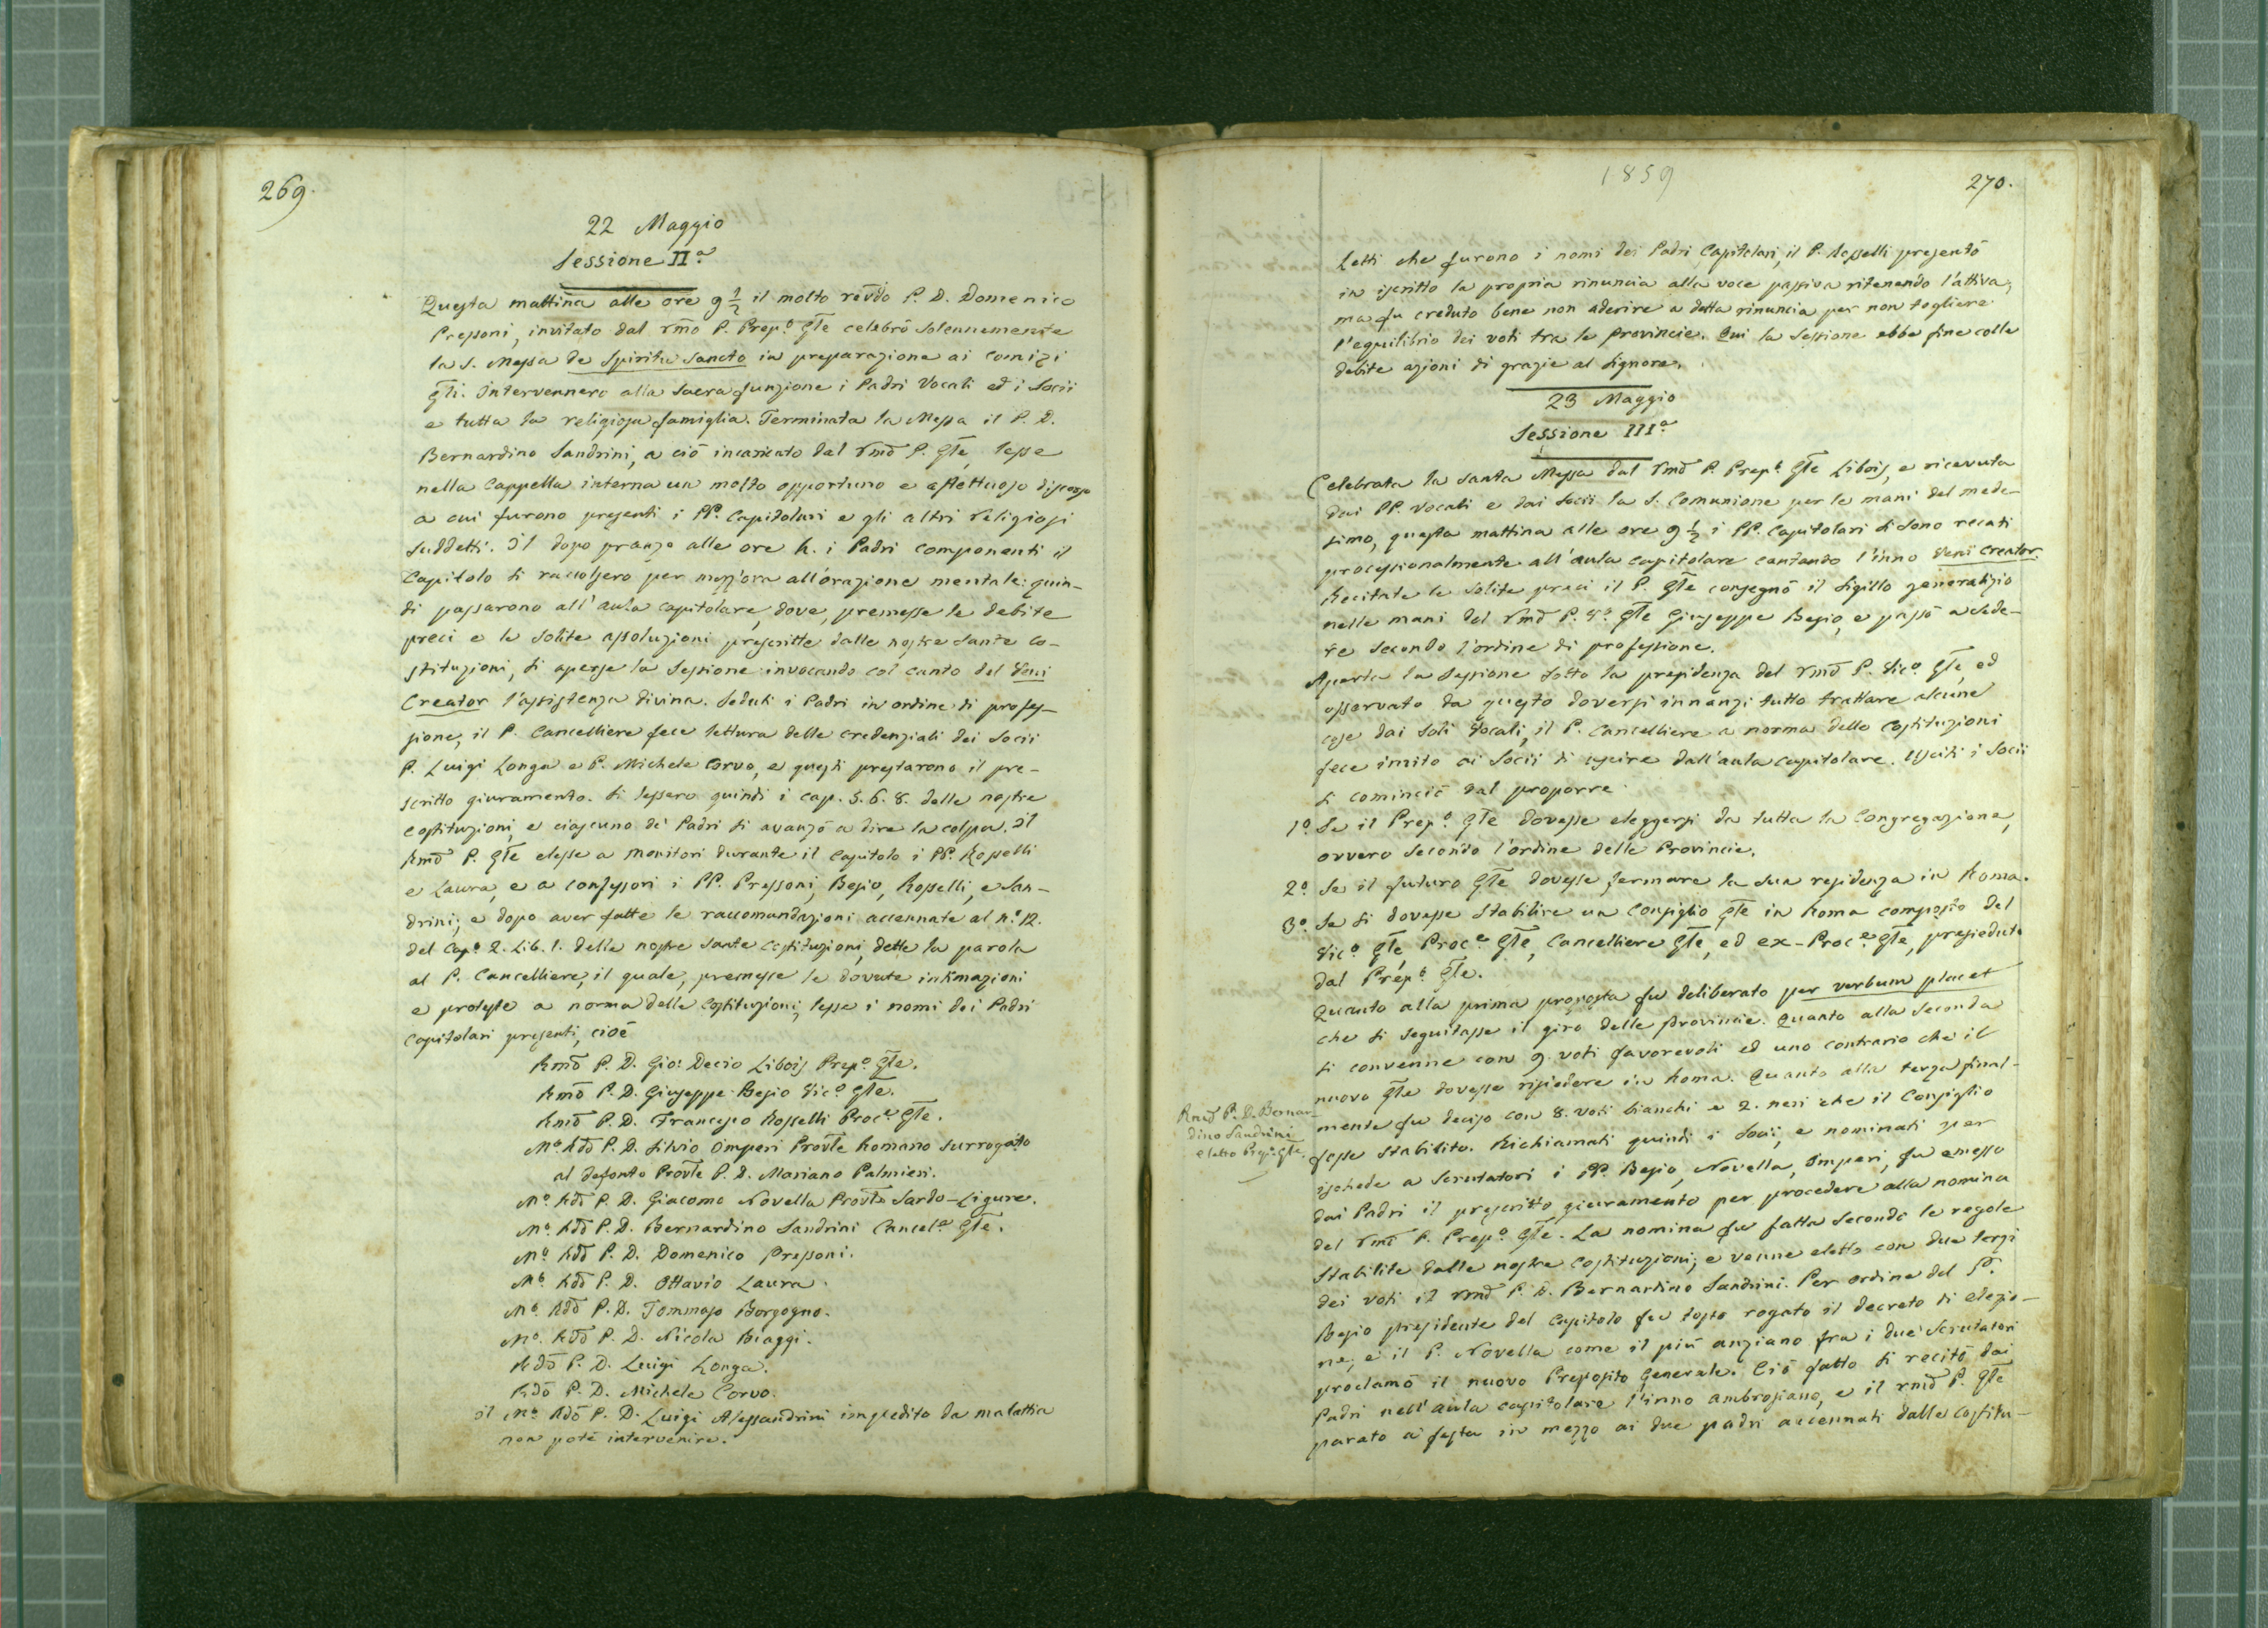 269.
22 Maggio
Sessione IIª
Questa mattina alle ore 9 ½ il molto revdo P. D. Domenico
Pressoni, invitato dal rmo P. Prepº Gle celebrò solennemente
la S. Messa de Spiritu Sancto in preparazione ai comizi
Gli. Intervennero alla sacra funzione i Padri Vocali ed i Socii
e tutta la religiosa famiglia. Terminata la Messa il P. D.
Bernardino Sandrini, a ciò incaricato dal rmo P. Gle, lesse
nella Cappella interna un molto opportuno e affettuoso discorso
a cui furono presenti i PP. Capitolari e gli altri religiosi
suddetti. Il dopo pranzo alle ore 4. i Padri componenti il
Capitolo si raccolsero per mezz'ora all'orazione mentale: quin-
di passarono all'aula capitolare, dove, premesse le debite
preci e le solite assoluzioni prescritte dalle nostre Sante Co-
stituzioni, si aperse la sessione invocando col canto del Veni
Creator l'assistenza divina. Seduti i Padri in ordine di profes-
sione, il P. Cancelliere fece lettura delle credenziali dei Socii
P. Luigi Longa e P. Michele Corvo, e questi prestarono il pre-
scritto giuramento. Si lessero quindi i cap. 5. 6. 8. delle nostre
costituzioni, e ciascuno de' Padri si avanzò a dire la colpa. Il
Rmo P. Gle elesse a monitori durante il Capitolo i PP. Rosselli
e Laura, e a confessori i PP. Pressoni, Besio, Rosselli, e San-
drini; e dopo aver fatte le raccomandazioni accennate al n.º 12.
del Capº 2. Lib. 1. delle nostre sante costituzioni, dette la parola
al P. Cancelliere, il quale, premesse le dovute intimazioni
e proteste a norma delle Costituzioni, lesse i nomi dei Padri
Capitolari presenti, cioè
Rmo P. D. Gio: Decio Libois Prepº Gle.
Rmo P. D. Giuseppe Besio Vicº Gle.
Rmo P. D. Francesco Rosselli Proce Gle.
Mº Rdo P. D. Silvio Imperi Provle Romano surrogato
al defonto Provle P. D. Mariano Palmieri.
Mº. Rdo P. D. Giacomo Novella Provle Sardo-Ligure.
Mº. Rdo P. D. Bernardino Sandrini Cancele Gle.
Mº Rdo P. D. Domenico Pressoni.
Mº. Rdo P. D. Ottavio Laura.
Mº. Rdo P. D. Tommaso Borgogno.
Mº. Rdo P. D. Nicola Biaggi.
Rdo P. D. Luigi Longa.
Rdo P. D. Michele Corvo.
Il Mº. Rdo P. D. Luigi Alessandrini impedito da malattia
non potè intervenire.
1859
270.
Letti che furono i nomi dei Padri Capitolari, il P. Rosselli presentò
in iscritto la propria rinuncia alla voce passiva ritenendo l'attiva;
ma fu creduto bene non aderire a detta rinuncia per non togliere
l'equilibrio dei voti tra le Provincie. Qui la Sessione ebbe fine colle
debite azioni di grazie al Signore.
23 Maggio
Sessione IIIª
Celebrata la santa Messa dal rmo P. Prepº Gle Libois, e ricevuta
dai PP. Vocali e dai Socii la S. Comunione per le mani del mede-
simo, questa mattina alle ore 9 ½ i PP. Capitolari si sono recati
processionalmente all'aula capitolare cantando l'inno Veni Creator.
Recitate le solite preci il P. Gle consegnò il sigillo generalizio
nelle mani del rmo P. Vº Gle Giuseppe Besio, e passò a sede-
re secondo l'ordine di professione.
Aperta la Sessione sotto la presidenza del rmo P. Vicº Gle, ed
osservato da questo doversi innanzi tutto trattare alcune
cose dai soli Vocali, il P. Cancelliere a norma delle Costituzioni
fece invito ai Socii di uscire dall'aula capitolare. Usciti i Socii
si cominciò dal proporre
1º Se il Prepº Gle dovesse eleggersi da tutta la Congregazione,
ovvero secondo l'ordine delle Provincie.
2º Se il futuro Gle dovesse fermare la sua residenza in Roma.
3º Se si dovesse stabilire un Consiglio Gle in Roma composto del
Vicº Gle, Proce Gle, Cancelliere Gle, ed ex-Proce Gle, presieduto
dal Prepº Gle.
Quanto alla prima proposta fu deliberato per verbum placet
che si seguitasse il giro delle Provincie. Quanto alla seconda
si convenne con 9 voti favorevoli ed uno contrario che il
nuovo Gle dovesse risiedere in Roma. Quanto alla terza final-
mente fu deciso con 8. voti bianchi e 2. neri che il Consiglio
fosse stabilito. Richiamati quindi i Socii, e nominati per
ischede a scrutatori i PP. Besio, Novella, Imperi, fu emesso
dai Padri il prescritto giuramento per procedere alla nomina
del rmo P. Prepº Gle. La nomina fu fatta secondo le regole
stabilite dalle nostre Costituzioni; e venne eletto con due terzi
dei voti il rmo P. D. Bernardino Sandrini. Per ordine del P.
Besio presidente del Capitolo fu tosto rogato il decreto di elezio-
ne; e il P. Novella come il più anziano fra i due scrutatori
proclamò il nuovo Preposito Generale. Ciò fatto si recitò dai
Padri nell'aula capitolare l'inno ambrosiano, e il rmo P. Gle
parato a festa in mezzo ai due padri accennati dalle Costitu-
Rmo P. D. Bernar-
dino Sandrini
eletto Prepº Gle.